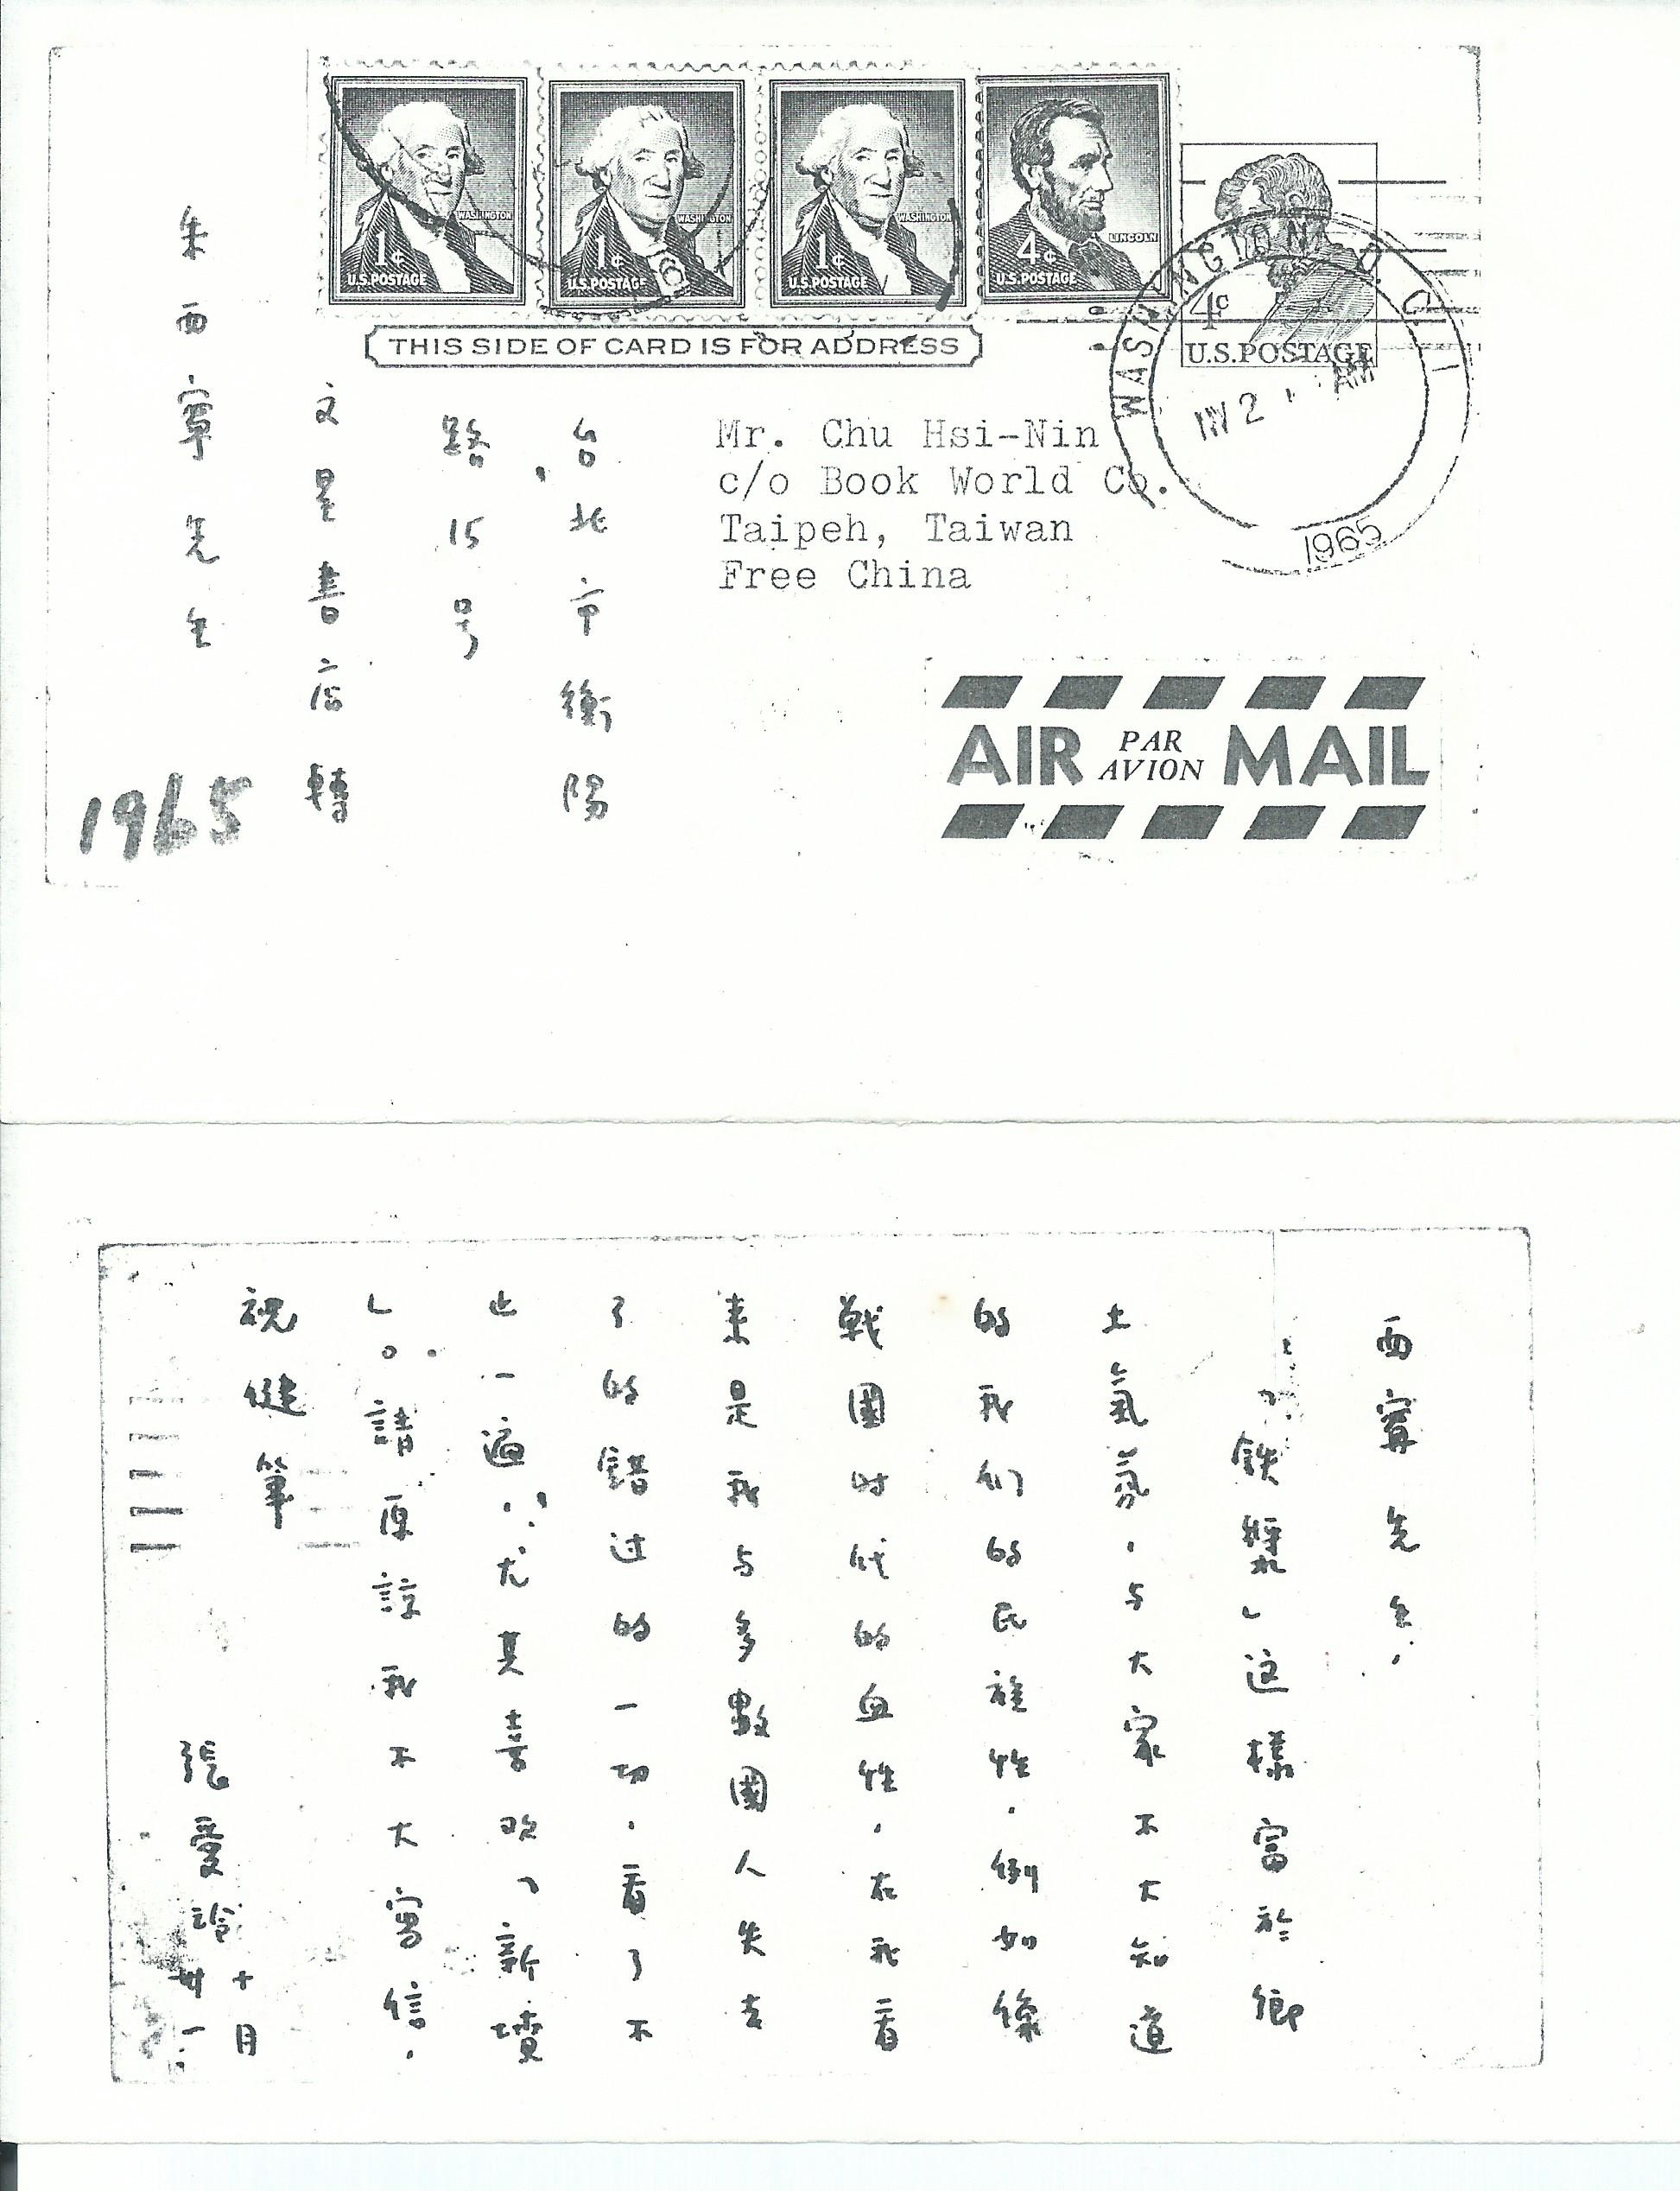 WASHINGTON
1¢
U.S.POSTAGE
WASHINGTON
1¢
U.S.POSTAGE
WASHINGTON
1¢
U.S.POSTAGE
LINCOLN
4¢
U.S.POSTAGE
4c
U.S.POSTAGE
WASHINGTON, D.C. 1
2 AM
1965
THIS SIDE OF CARD IS FOR ADDRESS
Mr. Chu Hsi-Nin
c/o Book World Co.
Taipeh, Taiwan
Free China
台北市衡陽
路15号,
文星書店轉
朱西寧先生
1965
AIR PAR AVION MAIL
西寧先生,
「铁漿」这樣富於鄉
土氣氛,与大家不大知道
的我们的民族性,例如像
戰國时代的血性,在我看
来是我与多數國人失去
了的錯过的一切,看了不
止一遍,尤其喜欢「新墳
」。請原諒我不大寫信,
祝健筆
張愛玲 十月
卅一